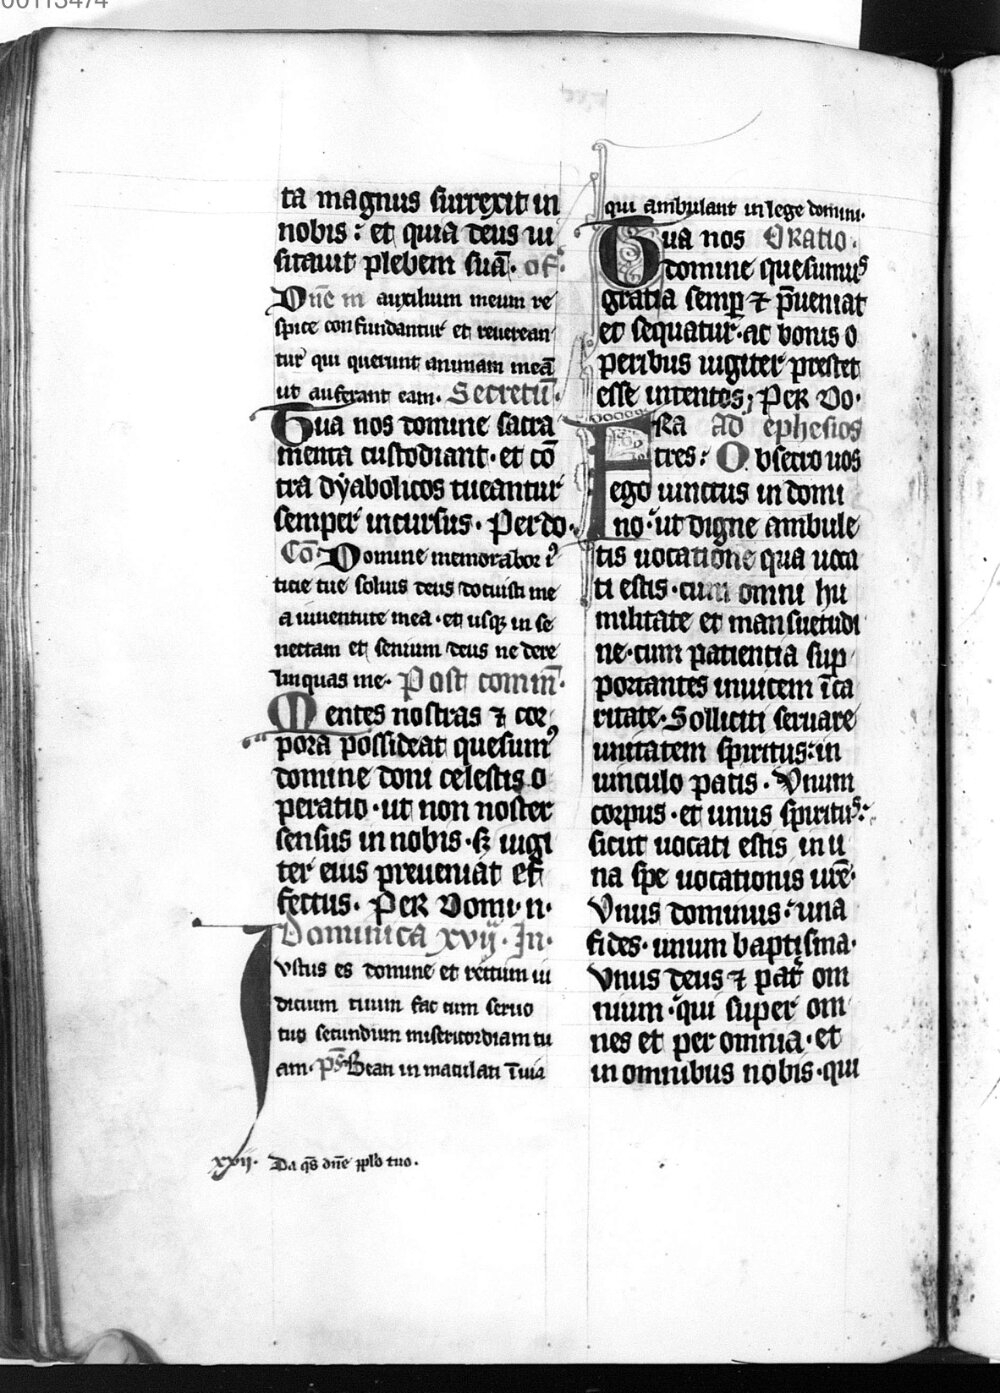 00113474
ta magnus surrexit in
nobis : et quia deus ui
sitauit plebem suā. of.
Dn̄e in auxilium meum re
spice confundantur et reuerean
tur qui querunt animam meā
ut auferant eam. Secretū.
Tua nos domine sacra
menta custodiant. et cō
tra dyabolicos tueantur
semper incursus. Per do.
Cō. Domine memorabor iꝰ
ticie tue solius deus docuisti me
a iuuentute mea. et usqꝫ in se
nectam et senium deus ne dere
linquas me. Post comm̄.
Mentes nostras ⁊ cor
pora possideat quesumꝰ
domine doni celestis o
peratio. ut non noster
sensus in nobis. sꝫ iugi
ter eius preueniat ef
fectus. Per Domi.n.
Dominica xvij. In.
Iustus es domine et rectum iu
dicium tuum fac cum seruo
tuo secundum misericordiam tu
am. ps̄ Beati in maculati ī uia
xxij. Da qs̄ dn̄e pplo tuo.
qui ambulant in lege domini.
Tua nos Oratio.
domine quesumus
gratia semꝑ ⁊ p̄ueniat
et sequatur. ac bonis o
peribus iugiter prestet
esse intentos; Per Do.
Fra Ad ephesios
tres : Obsecro uos
ego iunctus in domi
no. ut digne ambule
tis uocatione qua uoca
ti estis. cum omni hu
militate et mansuetudi
ne. cum patientia sup
portantes inuicem ī ca
ritate. Solliciti seruare
unitatem spiritus : in
uinculo pacis. Vnum
corpus. et unus spiritus :
sicut uocati estis in u
na spe uocationis ur̄e.
Vnus dominus : una
fides. unum baptisma.
Vnus deus ⁊ pat̄ om
nium. qui super om
nes et per omnia. et
in omnibus nobis. qui